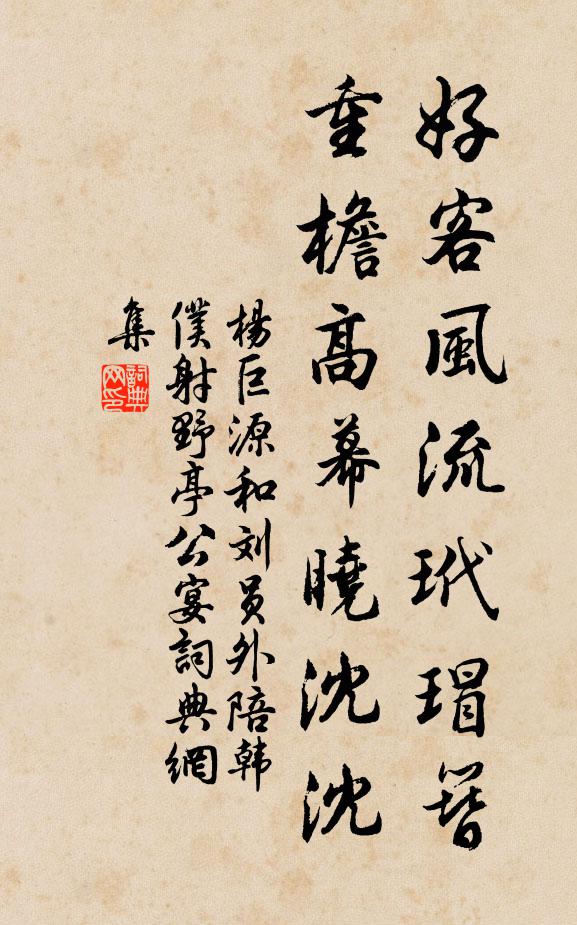 好客風流玳瑁簪
重檐高幕曉沈沈
楊巨源和刘員外陪韩
僕射野亭公宴詞典網
集
詞典网印